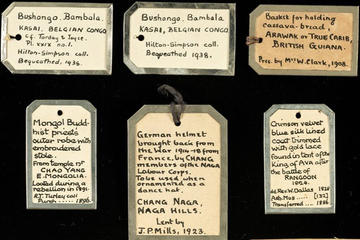 Bushongo, Bambala.
KASAI, BELGIAN CONGO
Cf. Torday & Joyce.
Pl. XXIX no. 1.
Hilton-Simpson coll.
Bequeathed, 1936.
Bushongo, Bambala
KASAI, BELGIAN CONGO,
Hilton-Simpson coll.
Bequeathed 1938.
Basket for holding
cassava-bread,
ARAWAK OR TRUE CARIB,
BRITISH GUIANA.
Pres. by Mrs W. Clark, 1908.
Mongol Budd-
hist priest's
outer robe with
embroidered
stole.
From temple nr
CHAO YANG
E. MONGOLIA.
Looted during a
rebellion in 1891.
R.T. Turley coll
Purch ..... 1896.
German helmet
brought back from
the War 1914-18 from
France, by CHANG
members of the NAGA
Labour Corps.
To be used when
ornamented as a
dance hat.
CHANG NAGA,
NAGA HILLS.
Lent by
J.P. Mills, 1923.
Crimson velvet
blue silk lined
coat trimmed
with gold lace
found in tent of the
King of AVA after
the battle of
RANGOON
de Rev. W. Dallas
Ash. Mus
Transferred ... 1886